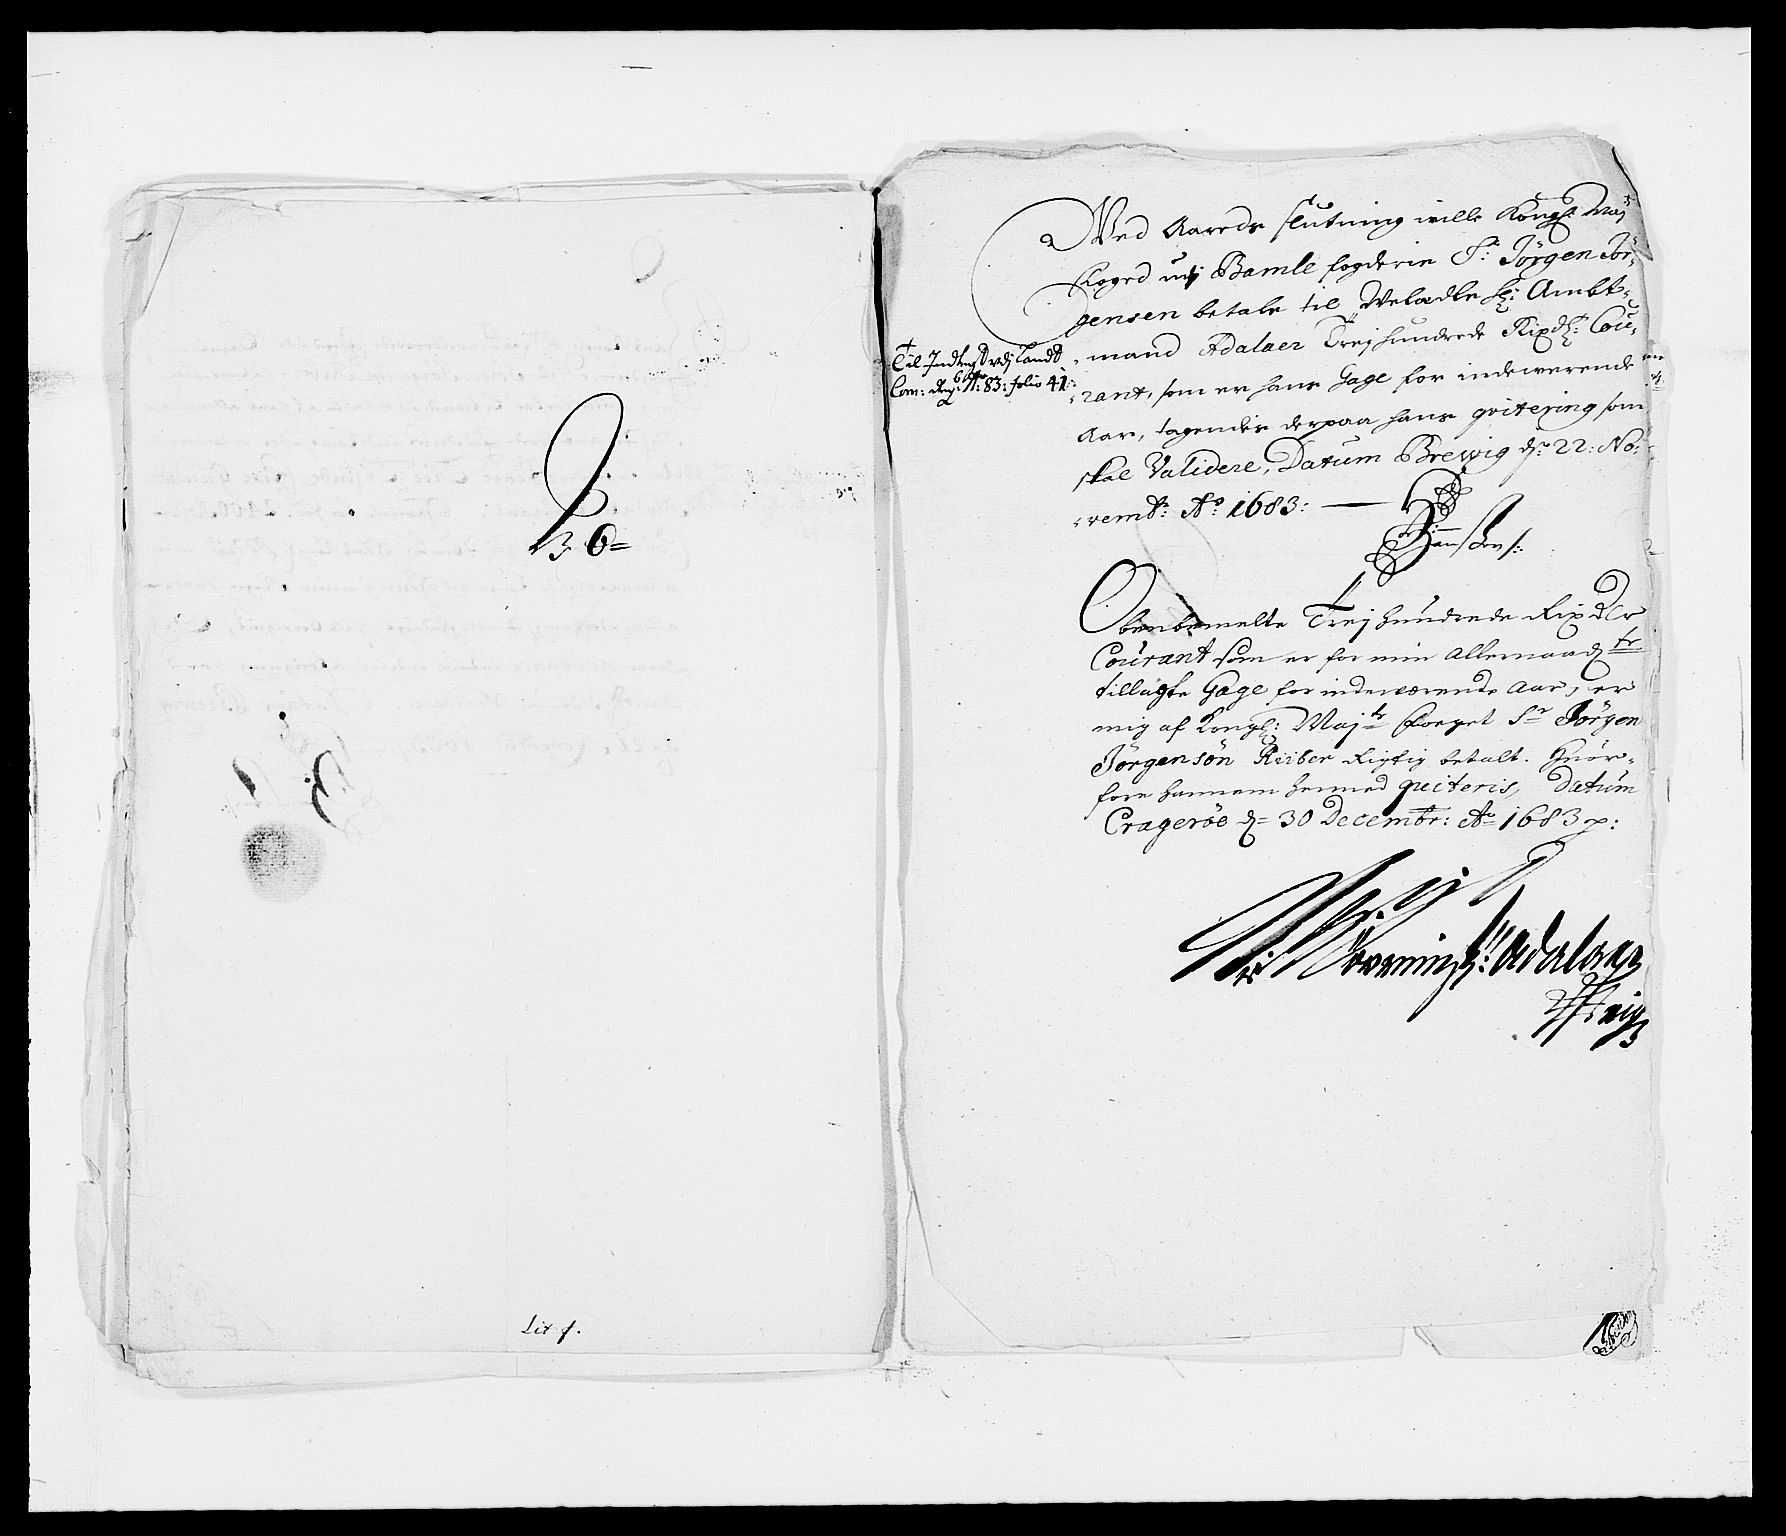 36=
Lit f.
Ved Aareds slutning wille Kongl: Maj
Foged udj Bamle fogderie Sr: Jörgen Jör-
gensen betale til Weladle Hr: Ambt-
mand Adalaer Trej hundrede Rixdlr: Cou-
rant, som er hans Gage for indewerende
Aar, tagendis derpaa hans qvitering som
skal Validere, Datum Brewig dn 22: No-
vembr: Ao: 1683:
Til Indtegt vdj Landt
Com: Reg: 83: folio 41
Obenbemelte Trej hundrede Rixdlr
Courant som er for min Allernaad:
tillagte Gage for indewærende Aar, er
mig af Kongl: Majts Foeget Sr Jörgen
Jörgensön Riiber Rigtig betalt. Huor-
fore hannem hermed qviteris, Datum
Cragerøe d= 30 Decembr: Ao 1683 p:
Adalaer